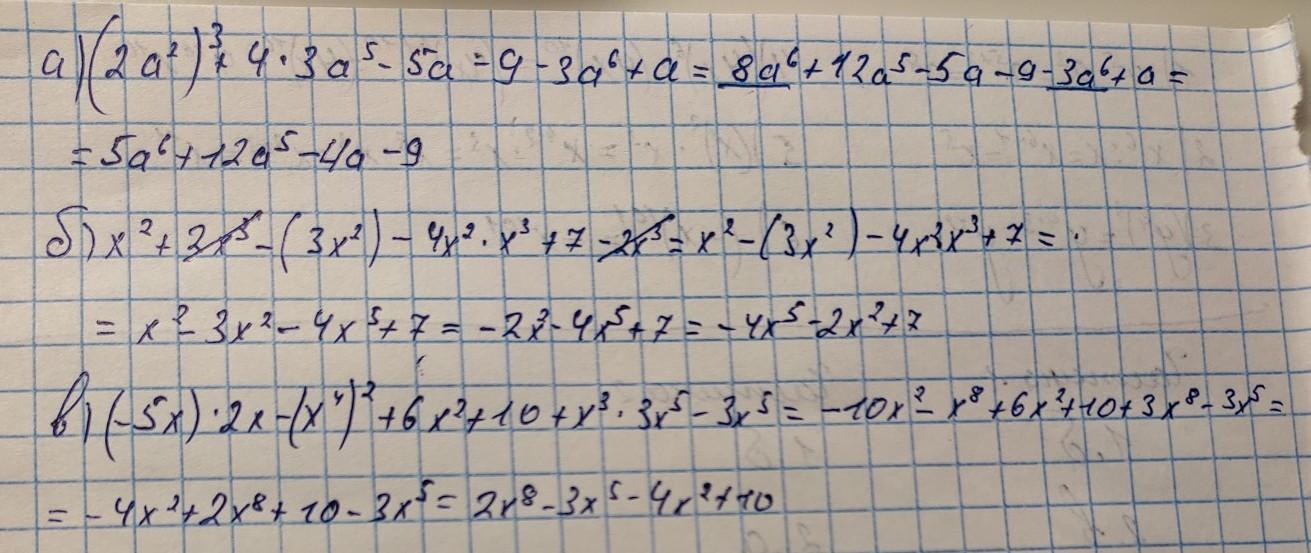 а) (2a²)³ + 4·3a⁵ - 5a - 9 - 3a⁶ + a = 8a⁶ + 12a⁵ - 5a - 9 - 3a⁶ + a =
= 5a⁶ + 12a⁵ - 4a - 9
б) x² + 3x³ - (3x²) - 4x²·x³ + 7 - 2x³ = x² - (3x²) - 4x²x³ + 7 =
= x² - 3x² - 4x⁵ + 7 = -2x² - 4x⁵ + 7 = -4x⁵ - 2x² + 7
в) (-5x)·2x - (x⁴)² + 6x² + 10 + x³·3x⁵ - 3x⁵ = -10x² - x⁸ + 6x² + 10 + 3x⁸ - 3x⁵ =
= -4x² + 2x⁸ + 10 - 3x⁵ = 2x⁸ - 3x⁵ - 4x² + 10